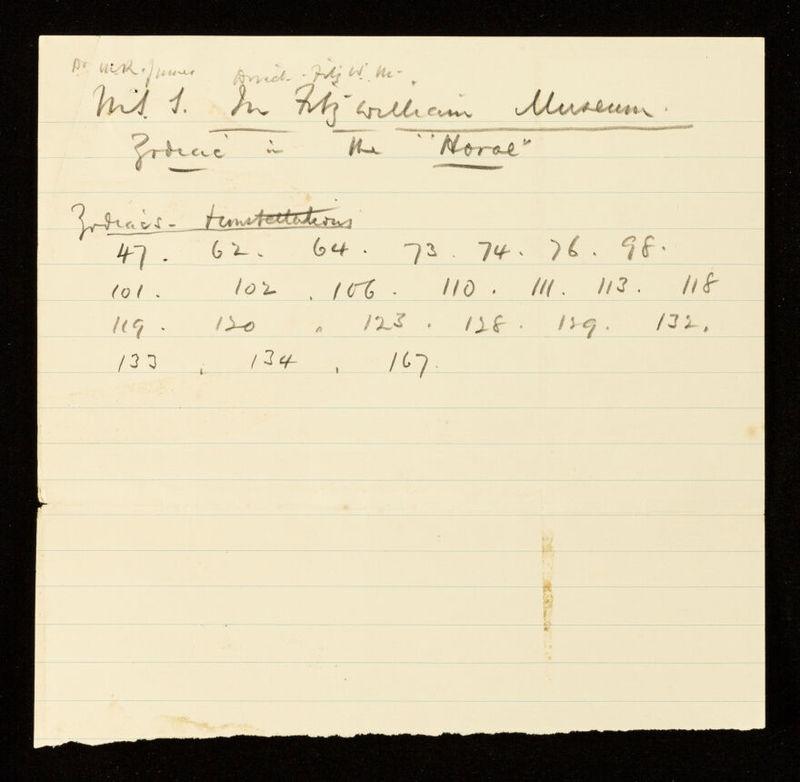 Dr M.R. James Fitz W. M.
MSS. In Fitzwilliam Museum.
Zodiac in the "Horae"
Zodiacs - + constellations
47. 62. 64. 73. 74. 76. 98.
101. 102. 106. 110. 111. 113. 118
119. 120. 123. 128. 129. 132.
133. 134. 167.